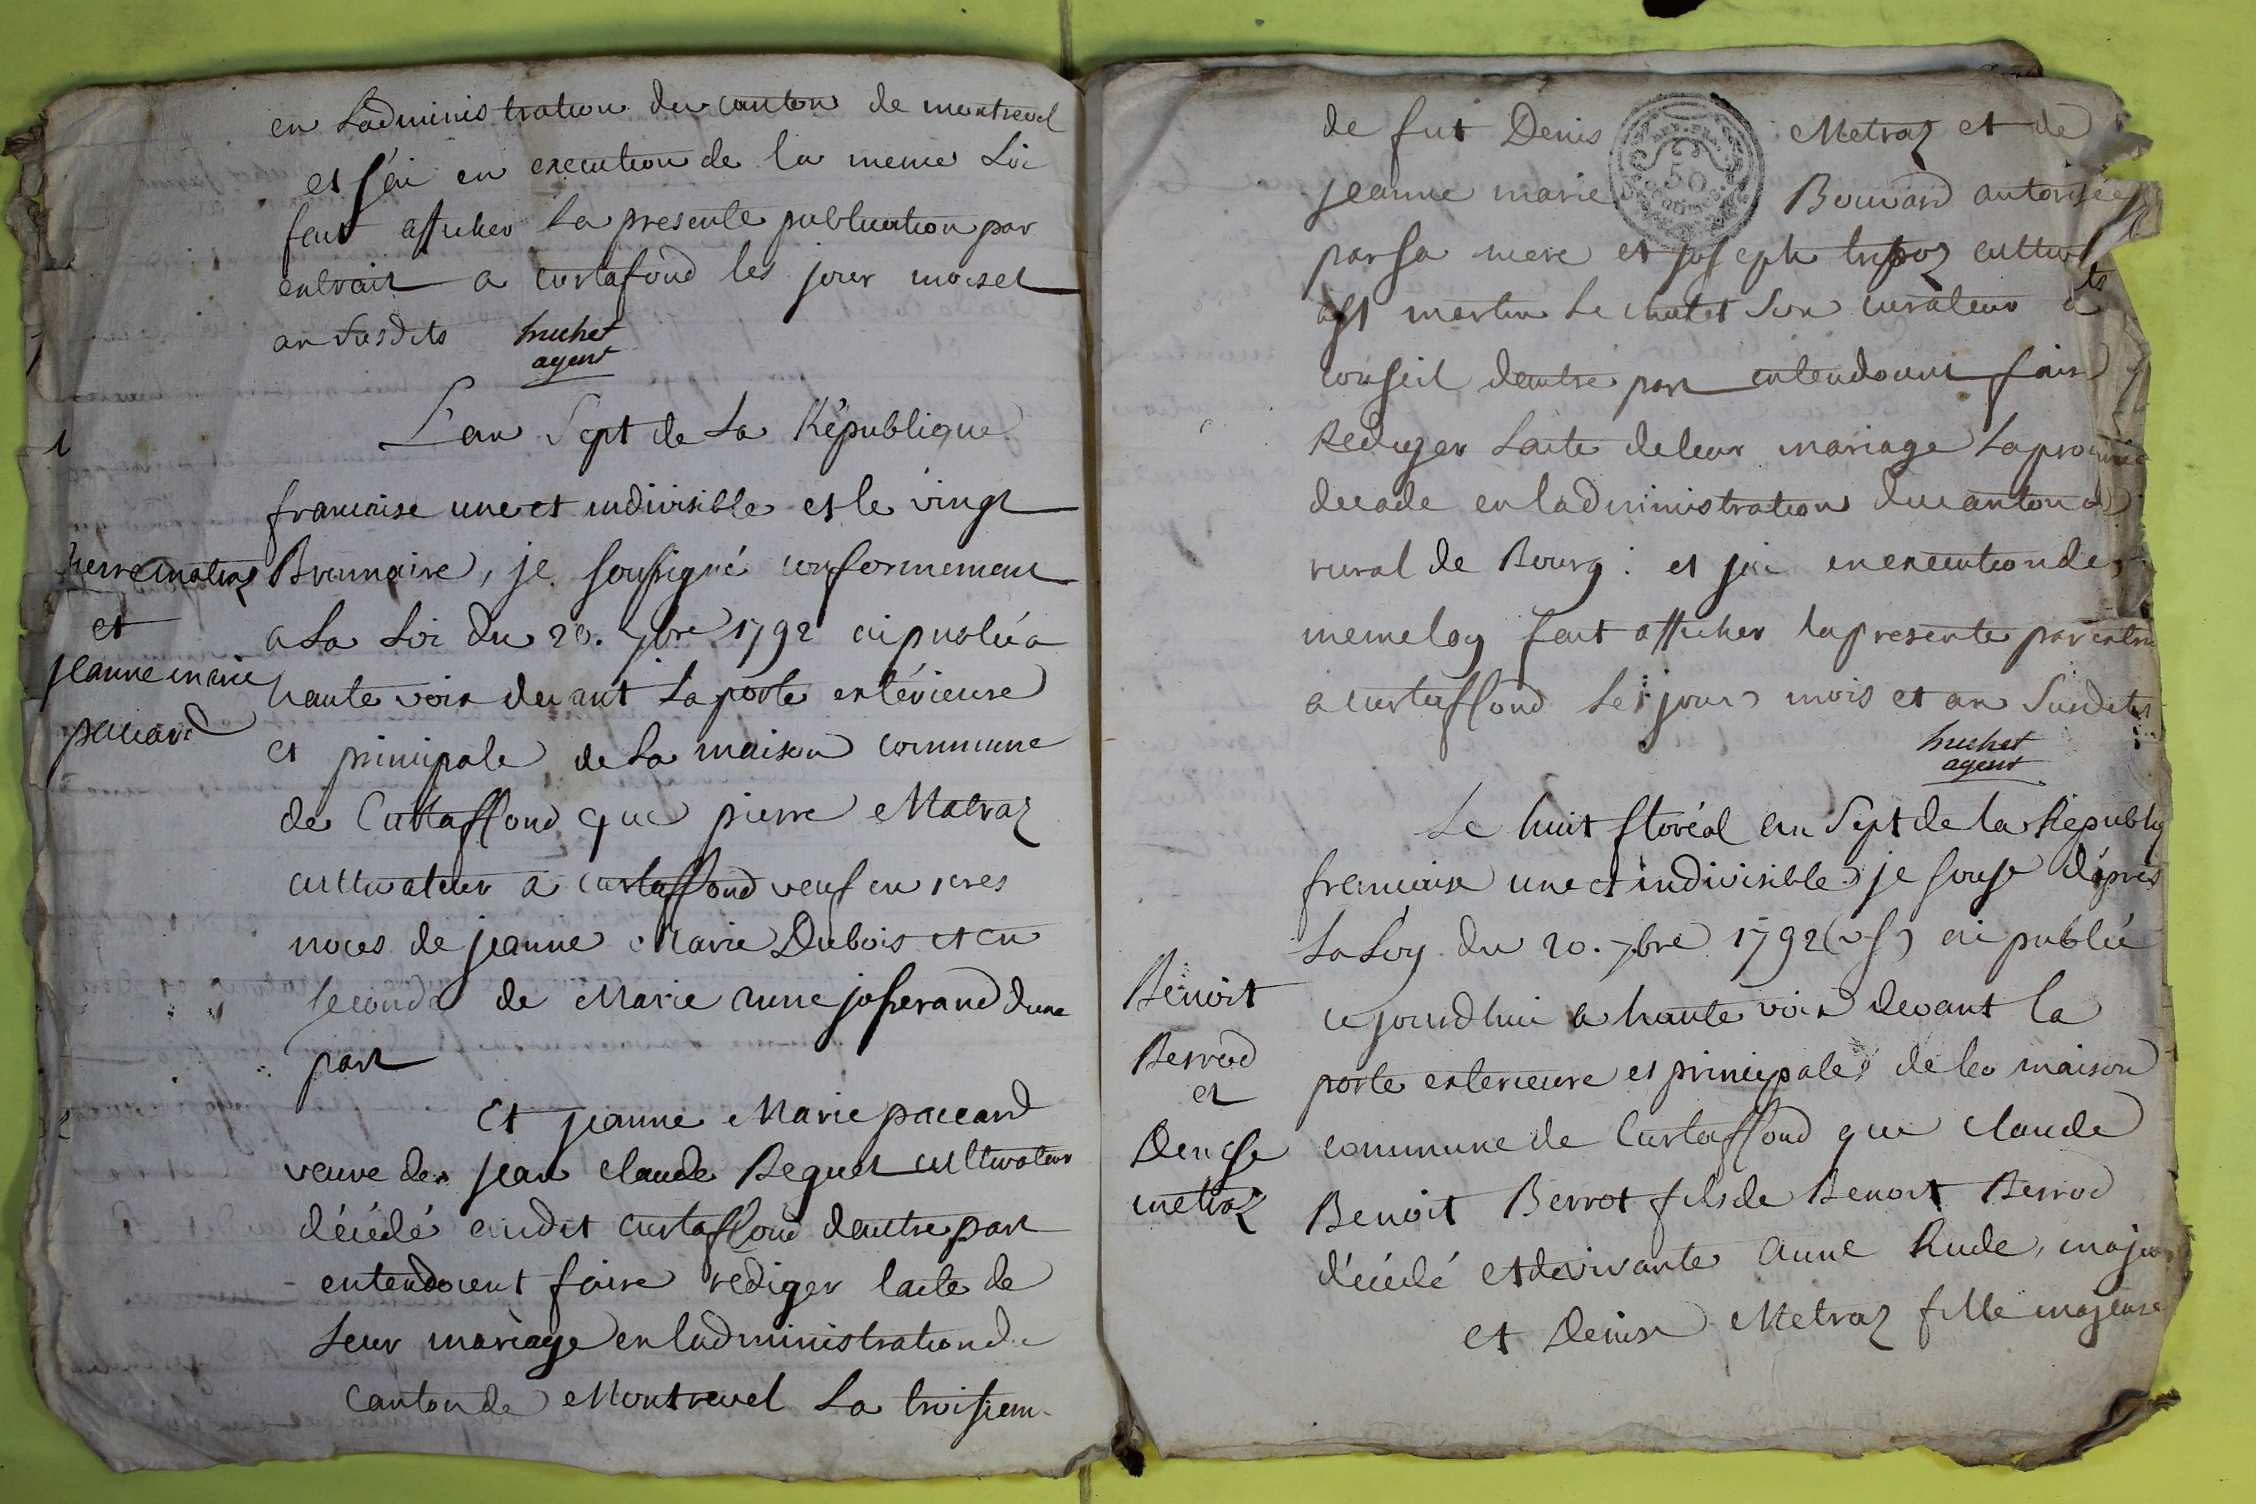 en Ladministration du canton de montrevel
et j'ai en execution de la meme Loi
fait afficher La presente publication par
extrait a curtafond les jour mois et
an susdits huchet
agent
L'an Sept de La République
francaise une et indivisible et le vingt
Brumaire, je soussigné conformement
a La Loi du 20. 7bre 1792 ai publié a
haute voix devant La porte extérieure
et principale de La maison commune
de Curtaffond que pierre Matraz
cultivateur a curtaffond veuf en 1eres
noces de jeanne Marie Dubois et en
seconde de Marie anne josserand dune
part
Et jeanne Marie paccard
veuve de jean claude Reguet cultivateur
décédé audit curtaffond dautre part
entendoient faire rediger lacte de
Leur mariage en ladministration du
Canton de Montrevel La troisiem
pierre matraz
et
jeanne marie
paccard
de fut Denis Metraz et de
jeanne marie Bouvard autorisée
par sa mere et joseph tripoz cultivt
a st martin Le chatel Son curateur a
conseil dautre part entendoient faire
Rediger Lacte de leur mariage La
decade en ladministration du canton
rural de Bourg. et jai en execution de
meme loy fait afficher la presente par extr
a curtaffond Les jour mois et an Susdits
huchet
agent
Le huit floréal an Sept de la Républiq
francaise une et indivisible je souse d'après
La Loy du 20. 7bre 1792 (vs) ai publié
cejourdhui a haute voix devant la
porte exterieure et principale de la maison
commune de Curtaffond que claude
Benoit Berrot fils de Benoit Berrod
décédé et de vivante anne Rude, majeur
et Denise Metraz fille majeure
Benoit
Berrod
et
Denise
metraz
50